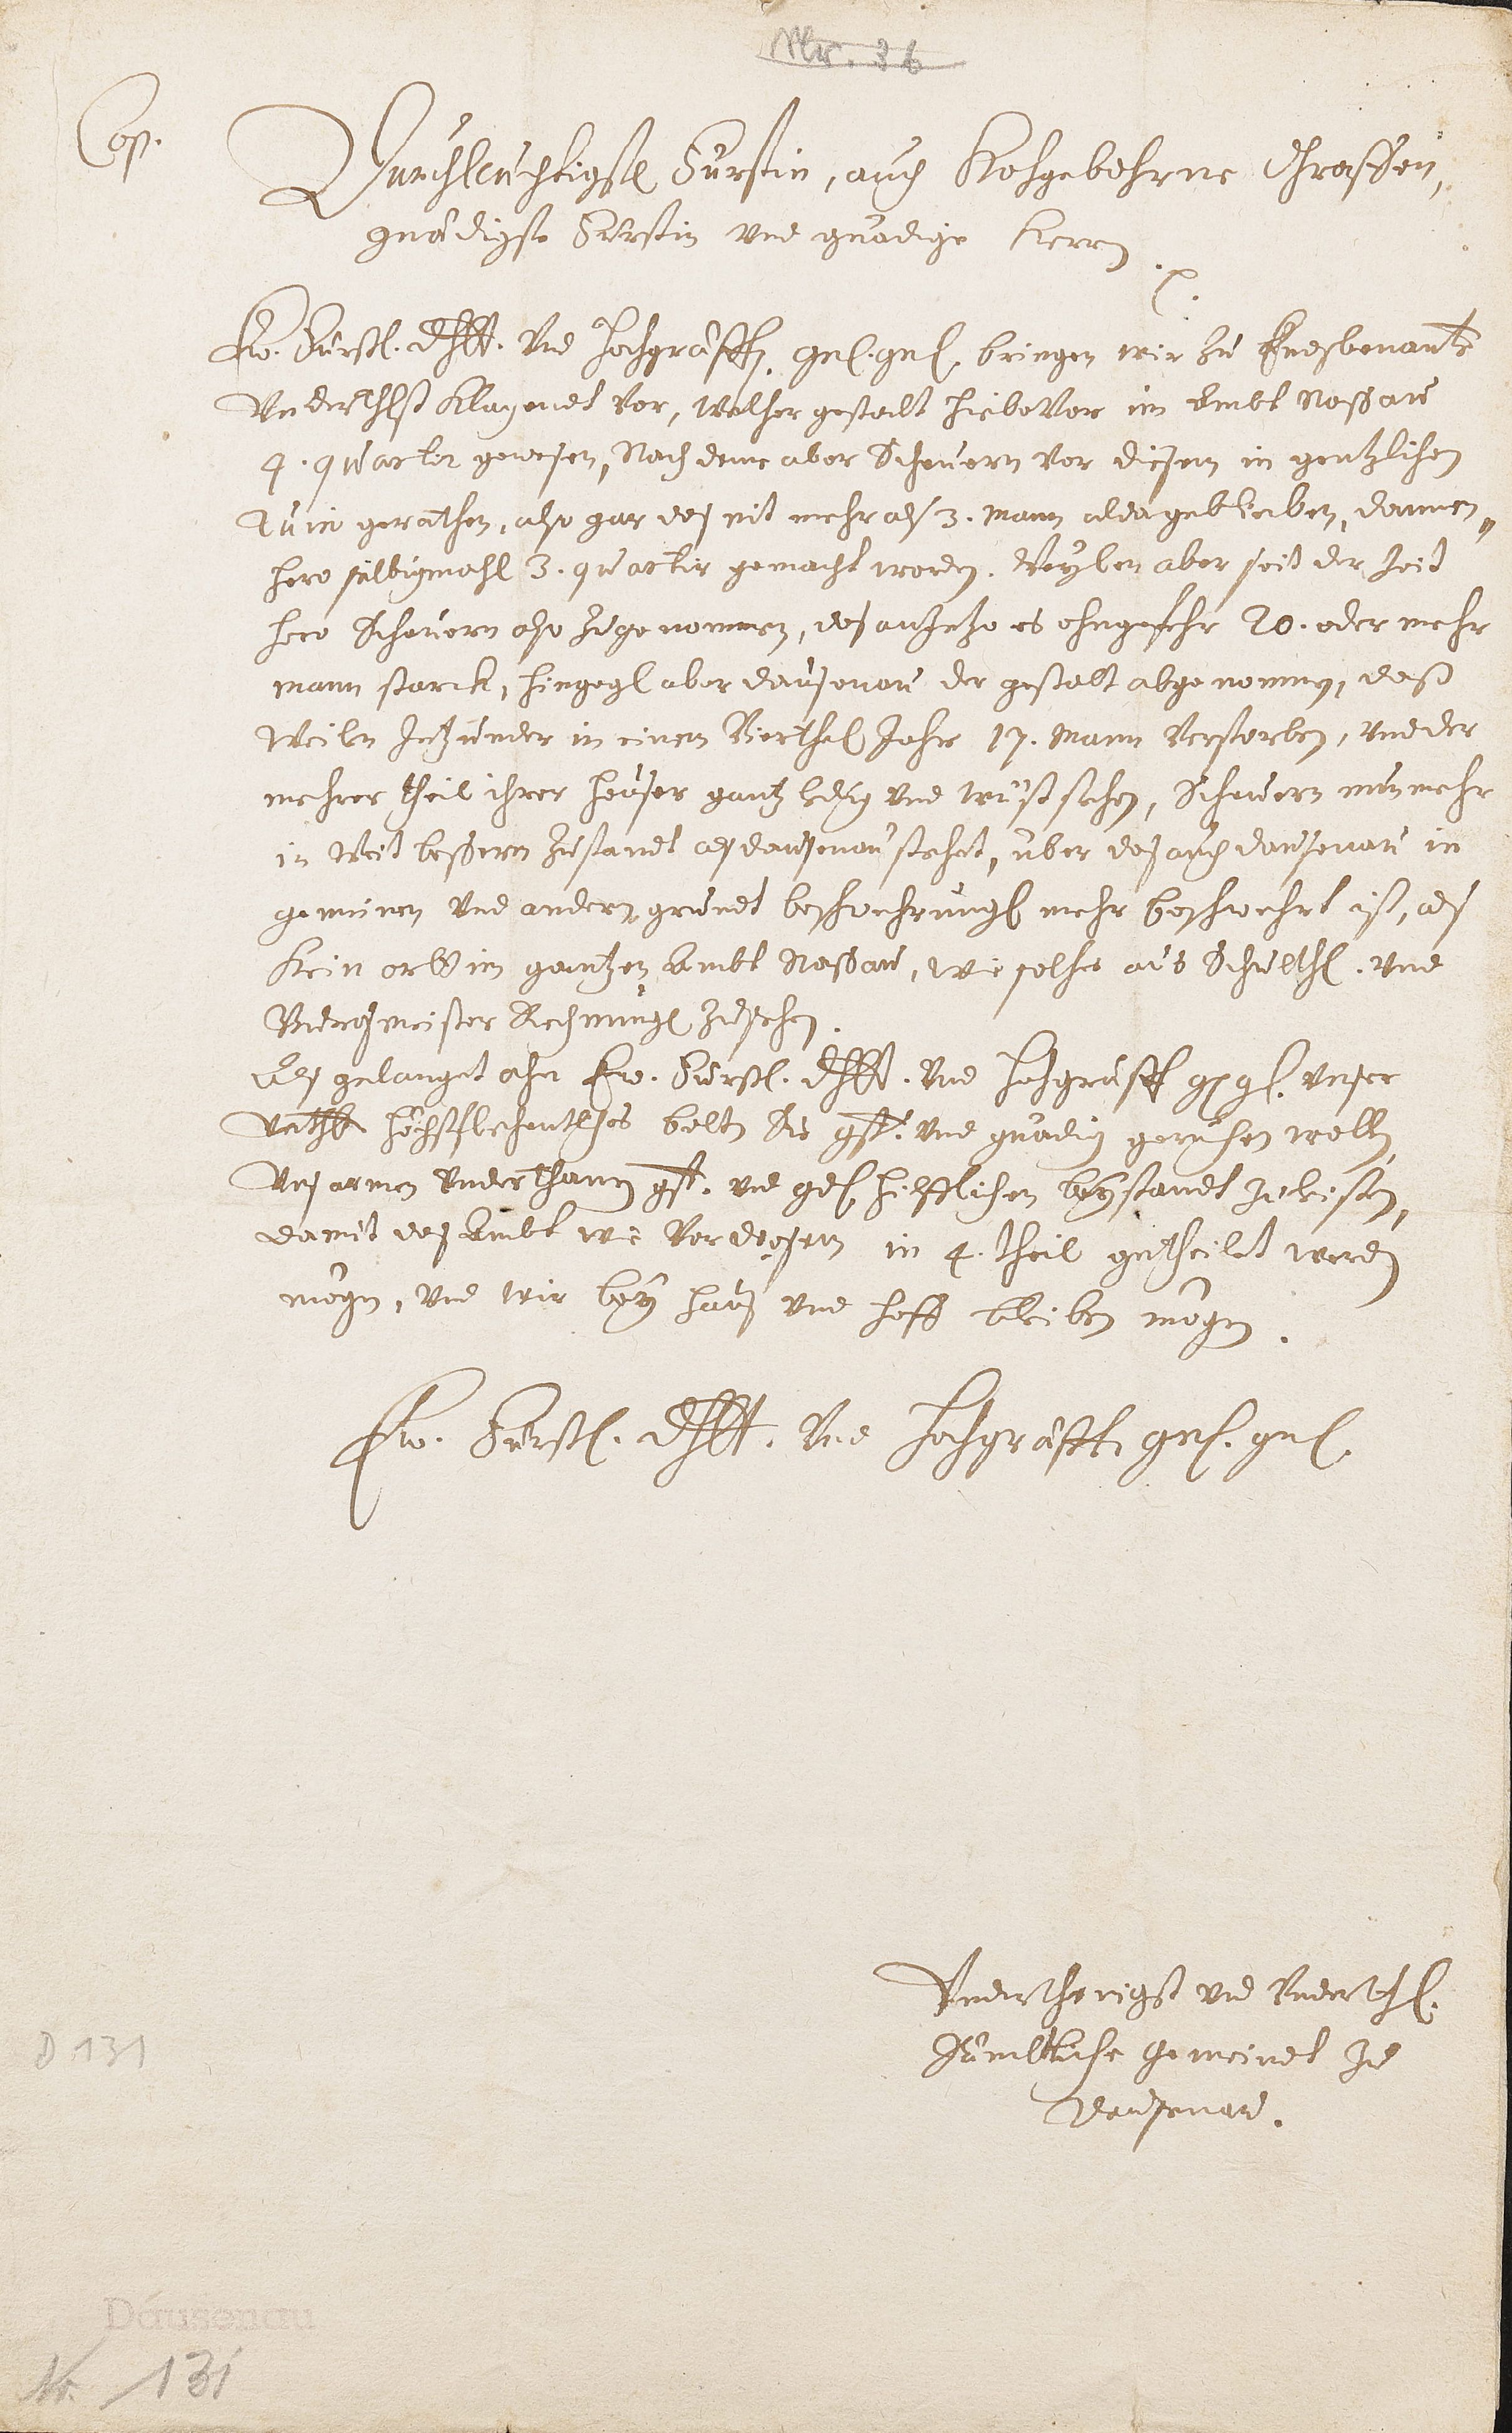 Nr. 36
Cop.
Durchleuchtigste Fürstin, auch Hochgebohrne Graffen,
gnädigste Fürstin vnd gnädige Herren
Ew. Fürstl. Dhltt. Vnd Hochgräffl. gnd. gnd. bringen wir zu Endsbenante
Vnderthst Klagendt vor, welcher gestalt hiebevor im Ambt Naßaw
4. quartir gewesen, Nach deme aber Scheuern vor diesem in gentzlichen
Ruin gerathen, also gar das nit mehr als 3. Mann alda geblieben, dannen„
hero selbigmahl 3. quartir gemacht worden. Weylen aber seit der Zeit
hero Scheuern also zugenommen, das anjetzo es ohngefehr 20. oder mehr
mann starck, hingegen aber Dausenau der gestalt abgenommen, daß
weiln Jetzunder in einem Vierthel Jahr 17. Mann verstorben, vnd der
mehrer theil ihrer heuser gantz ledig vnd wüst stehen, Scheuern nunmehr
in Weit beßerm Zustandt als Dausenau stehet, über das auch Dausenau in
gemeinen vnd andern grundt beschwehrungen mehr beschwehrt ist, als
Kein orth im gantzen Ambt Naßaw, wie solches aus Schulth. vnd
Burgemeister Rechnungen zusehen.
Als gelanget ahn Ew. Fürstl. Dhltt. Vnd Hochgräffl. gn. gn. vnser
Vnthst höchstflehentliches bitten Sie gst. vnd gnädig geruhen wollen
Vns armen Vnderthanen gst. vnd gnd. hilfflichen beystandt zu leisten,
damit das Ambt wie vor diesem in 4. theil getheilet werden
mögen, vnd wir bey hauß vnd hoff bleiben mögen.
Ew. Fürstl. Dhltt. Vnd Hochgräffl. gnd. gnd.
Vnderthenigst vnd Vnderthl.
Sämbtliche Gemeindt zu
Dausenau.
D 131
Dausenau
Nr. 131